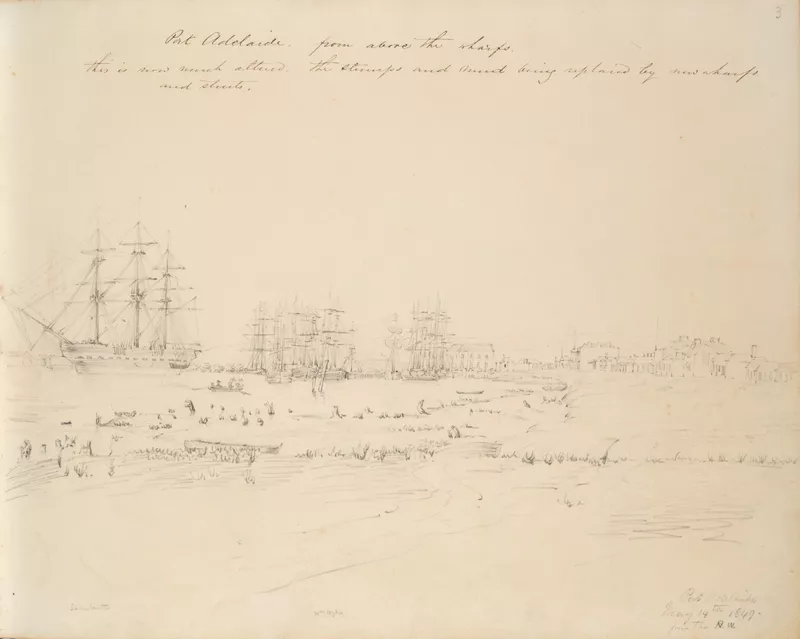 3
Port Adelaide. from above the wharfs.
this is now much altered. the stumps and being replaced by new wharfs
and streets.
Port Adelaide
May 14th 1849.
from the N.W.